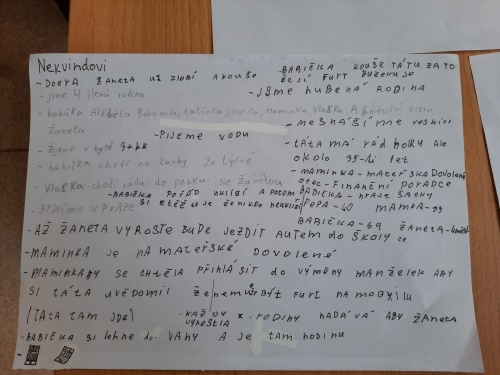 Nekvindovi
BABIČKA KOUŠE TÁTU ZATO
- DCERA ŽANETA UŽ ZLOBÍ A KOUŠE
ŽE JÍ FURT BUZERUJE
- jsme 4 členná rodina
- JSME HUBENÁ RODINA
- babička Alžběta Bohumila, tatínek Josef, Maminka Vlaďka, A
Žaneta
- MESNÁŠÍME VESNICI
- PIJEME VODU
- žijeme v bytě 3+kk
- TÁTA MÁ RÁD HOLKY ALE
OKOLO 35-ti let
- babička chodí na čachy 2x týdně
- MAMINKA - MATEŘSKÁ DOVOLENÁ
Vlaďka chodí ráda do parku se Žanetou
OTEC - FINANČNÍ PORADCE
- BABIČKA POŘÁD A POTOM
BABIČKA - HRAJE ŠACHY
- BYDLÍME V PRAZE
SI STĚŽUJE ŽE NIKDO NEUKLÍZÍ
PEPA - 40 MAMKA - 39
BABIČKA - 69 ŽANETA -
- AŽ ŽANETA VYROSTE BUDE JEZDIT AUTEM DO ŠKOLY
- MAMINKA JE NA MATEŘSKÉ DOVOLENÉ
- MAMINKA BY SE CHTĚLA PŘIHLÁSIT DO VÝMĚNY MANŽELEK ABY
SI TÁTA UVĚDOMIL ŽE NEMUŽE BÝT FURT NA MOBILU
(TÁTA TAM JDE)
- KAŽDÝ Z RODINY NADÁVÁ ABY ŽANETA
VYROSTLA
- BABIČKA SI LEHNE DO VANY A JE TAM HODINU